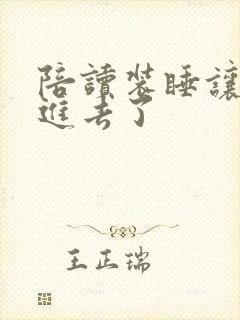 陪讀裝睡讓
進去了
王正瑞